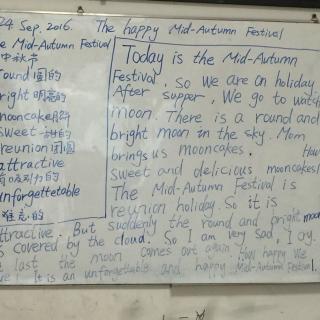 24 Sep. 2016. The happy Mid-Autumn Festival
e Mid-Autumn Festival
中秋节
round 圆的
right 明亮的
mooncake 月饼
sweet 甜的
reunion 团圆
attractive
有吸引力的
unforgettable
难忘的
Today is the Mid-Autumn
Festival, So we are on holiday
After supper, We go to watch
moon. There is a round and
bright moon in the sky. Mom
brings us mooncakes. How
sweet and delicious mooncakes!
The Mid-Autumn Festival is
reunion holiday. So it is
attractive. But suddenly the round and bright moon
s covered by the cloud. So I am very sad, I cry.
last the moon comes out again. How happy we
! It is an unforgettable and happy Mid-Autumn Festival.